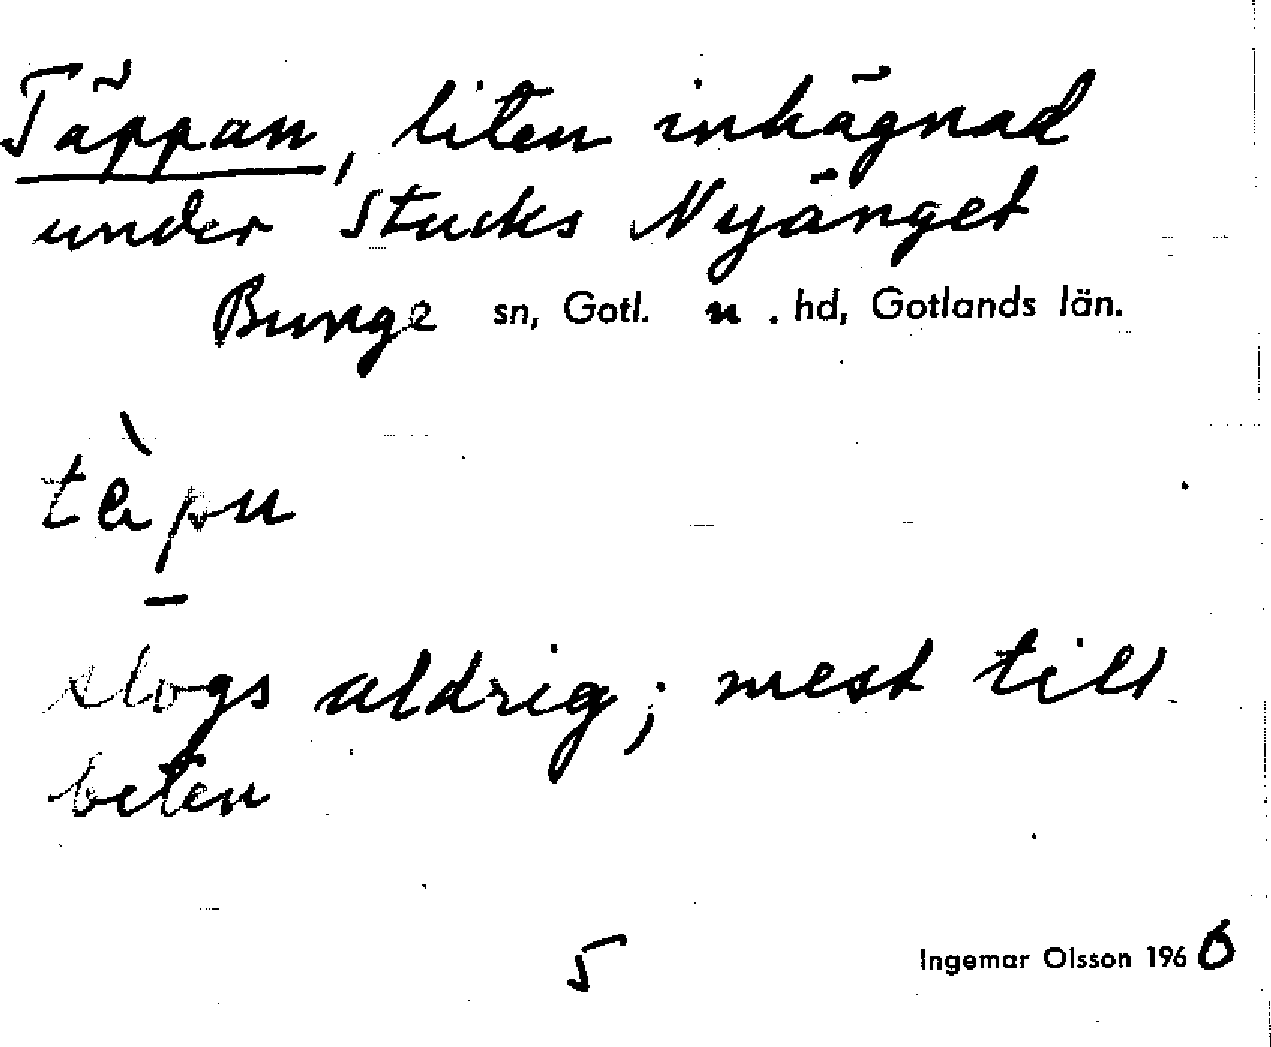 Täppan, liten inhägnad
under Stucks Nyänget
Bunge sn, Gotl. n. hd, Gotlands län.
tè̀pu
slogs aldrig; mest till
beten
5
Ingemar Olsson 1966